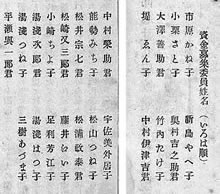 資金募集委員姓名(いろは順)
市原つね子 新島やへ子
小栗さと子 奥村吉之助君
大澤善助君 竹内たけ子
堤ゑん子 中村伊津吉君
中村榮助君 宇佐美外居子
能勢みち子 松山つね子
松井宗七君 松浦政泰君
松崎又三郎君 藤井とい子
小崎ちよ子 足利芳江子
湯淺次郎君 湯淺はつ子
湯淺つね子 三樹あづま子
平瀬與一郎君